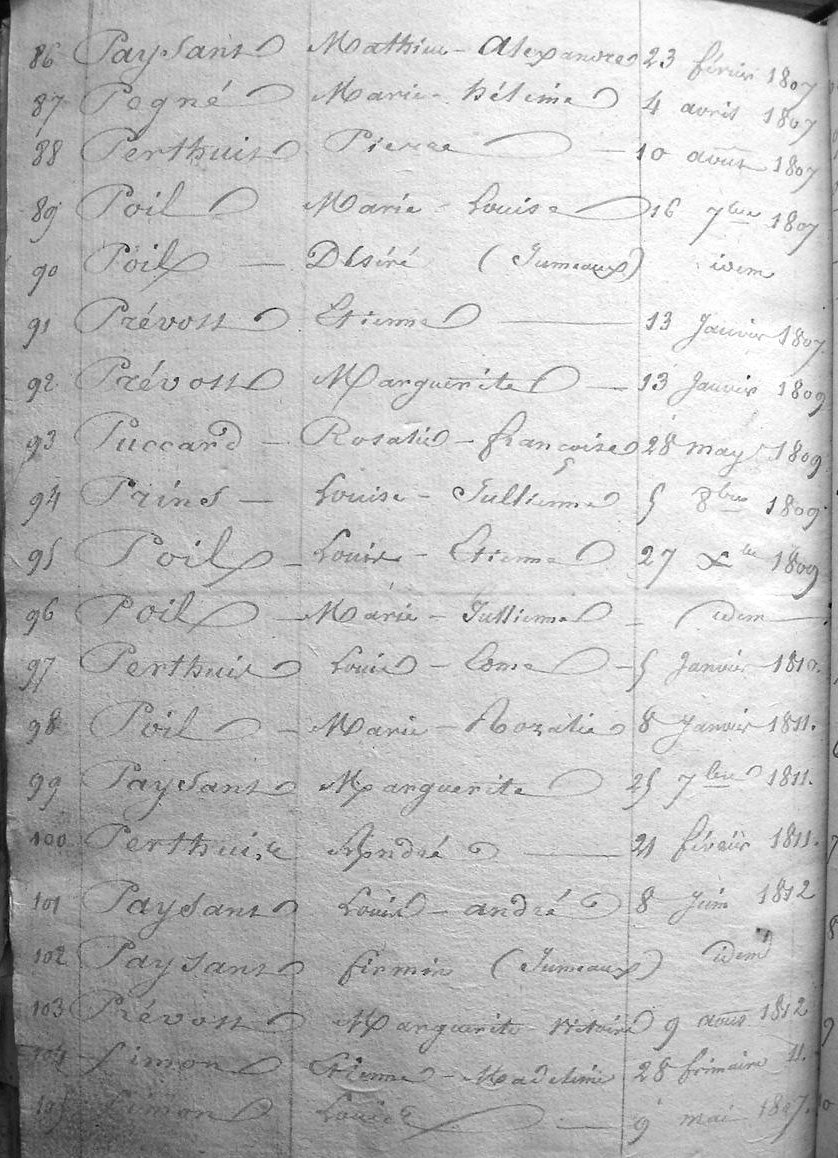 86 Paysant Mathieu - Alexandre 23 février 1807
87 Pegné Marie - héleine 4 avril 1807
88 Perthuis Pierre — 10 aoust 1807
89 Poil Marie - Louise 16 7bre 1807
90 Poil — Désiré (Jumeaux) idem
91 Prévost Etienne — 13 Janvier 1807.
92 Prévost Marguerite — 13 Janvier 1809
93 Puccard - Rosalie - françoise 28 may 1809
94 Prins — Louise - Jullienne 5 8bre 1809
95 Poil - Louis - Etienne 27 Xbre 1809
96 Poil - Marie - Jullienne - idem —
97 Perthuis Louis - Come - 5 Janvier 1810.
98 Poil - Marie - Rozalie 8 Janvier 1811.
99 Paysant Marguerite 25 7bre 1811.
100 Perthuise André — 21 février 1811.
101 Paysant Louis - andré 8 Juin 1812
102 Paysant firmin (Jumeaux) idem
103 Prévost Marguerite victoire 9 aoust 1812
104 Simon Etienne - Madeleine 28 frimaire 11.
105 Simon Louise — 9 mai 1807.